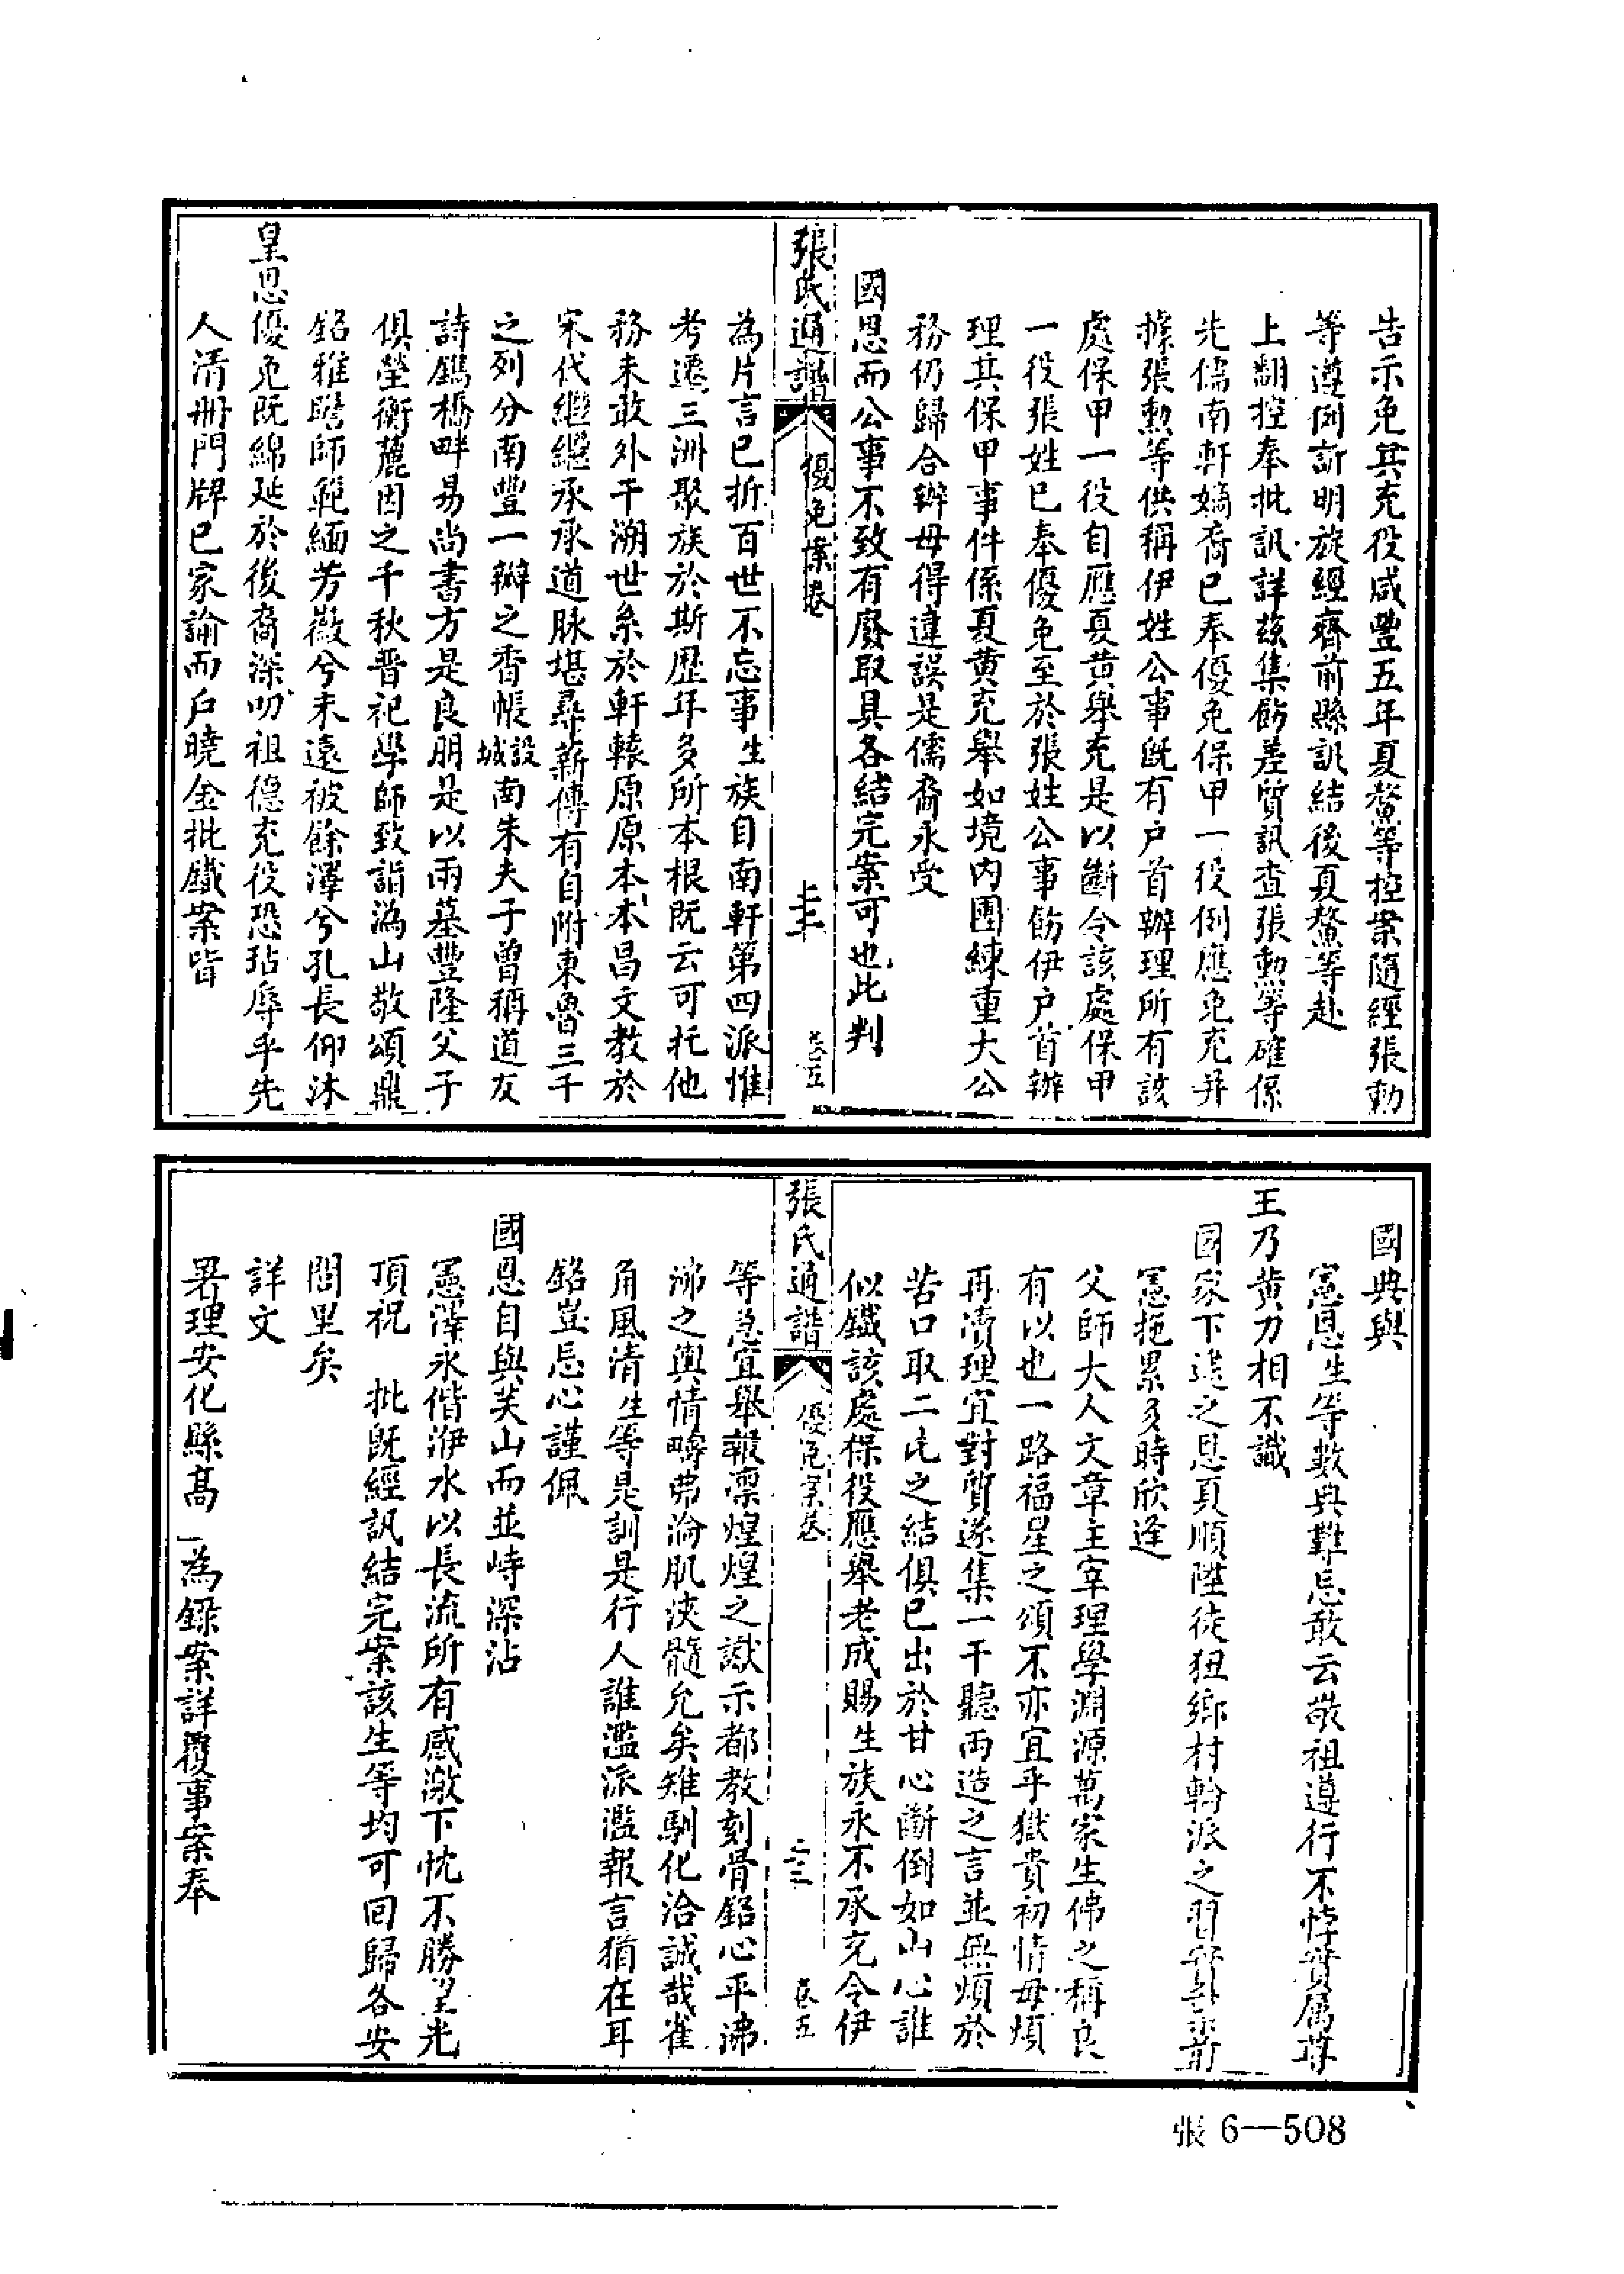 告示免其充役咸豐五年夏鰲等控案隨經張勳
等遵例訴明旋經齊前縣訊結後夏鰲等赴
上翻控奉批訊詳茲集飭差質訊查張勳等確係
先儒南軒嫡裔已奉優免保甲一役例應免充并
據張勲等供稱伊姓公事既有户首辦理所有該
處保甲一役自應夏黄舉充是以斷令該處保甲
一役張姓已奉優免至於張姓公事飭伊户首辦
理其保甲事件係夏黄充舉如境内團練重大公
務仍歸合辦毋得違誤是儒裔永受
國恩而公事不致有廢取具各結完案可也此判
張氏通譜
優免案卷
卷五
為片言已折百世不忘事生族自南軒第四派惟
考遷三洲聚族於斯歷年多所本根既云可托他
務未敢外干溯世系於軒轅原原本本昌文教於
宋代繼繼承承道脉堪尋薪傳有自附東魯三千
之列分南豐一瓣之香帳設城南朱夫子曾稱道友
詩鐫橋畔易尚書方是良朋是以兩墓豐隆父子
俱塋衡麓因之千秋晋祀學師致詣溈山敬頌鼎
銘雅瞻師範緬芳徽兮未遠被餘澤兮孔長仰沐
皇恩優免既綿延於後裔深叨祖德充役恐玷辱乎先
人清册門牌已家諭而户曉金批鐵案皆
國典與
憲恩生等數典難忘敢云敬祖遵行不悖實属尊
王乃黄刀相不識
國家下逮之恩夏順陞徒狃鄉村輪派之習實
憲拖累多時欣逢
父師大人文章主宰理學淵源萬家生佛之稱良
有以也一路福星之頌不亦宜乎獄貴初情毋煩
再瀆理宜對質遂集一干聽两造之言並無煩於
苦口取二比之結俱已出於甘心斷倒如山心誰
似鐵該處保役應舉老成賜生族永不承充令伊
張氏通譜
優免案卷
卷五
等急宜舉報凛煌煌之讞示都教刻骨銘心平沸
沸之輿情疇弗淪肌浹髓允矣雉馴化洽誠哉雀
角風清生等是訓是行人誰濫派濫報言猶在耳
銘豈忘心謹佩
國恩自與芙山而並峙深沾
憲澤永偕洢水以長流所有感激下忱不勝望光
頂祝 批既經訊結完案該生等均可回歸各安
閭里矣
詳文
署理安化縣高 為錄案詳覆事案奉
張 6—508